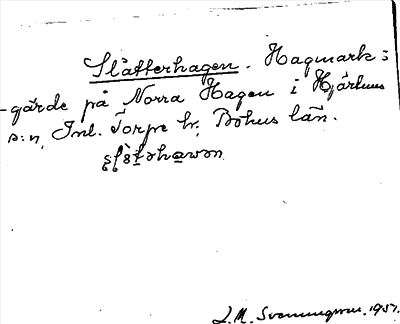 Slåtterhagen. Hagmark:
-gärde på Norra Hagen i Hjärtums
s:n, Inl. Torpe hr, Bohus län.
J.M. Svenningsson. 1951.